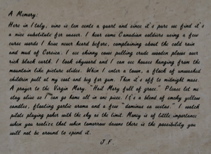 A Memory.
Here in Italy, wine is ten cents a quart and since it's pure we find it's
a nice substitute for water. I hear some Canadian soldiers using a few
curse words I have never heard before, complaining about the cold rain
and mud of Cervia. I see skinny oxen pulling crude wooden plows over
rich black earth. I look skyward and I can see houses hanging from the
mountain like picture slides. When I enter a town, a flock of unwashed
children pull at my coat and beg for gum. Then it's off to midnight mass.
A prayer to the Virgin Mary. "Hail Mary full of grace." Please let me
stay alive so I can go home all in one piece. It's a blend of smoky yellow
candles, floating garlic aroma and a few "dominus
pilots playing poker with the sky as the limit. Money is of little importance
when you realize that when tomorrow dawns there is the possibility you
will not be around to spend it.
J. F.